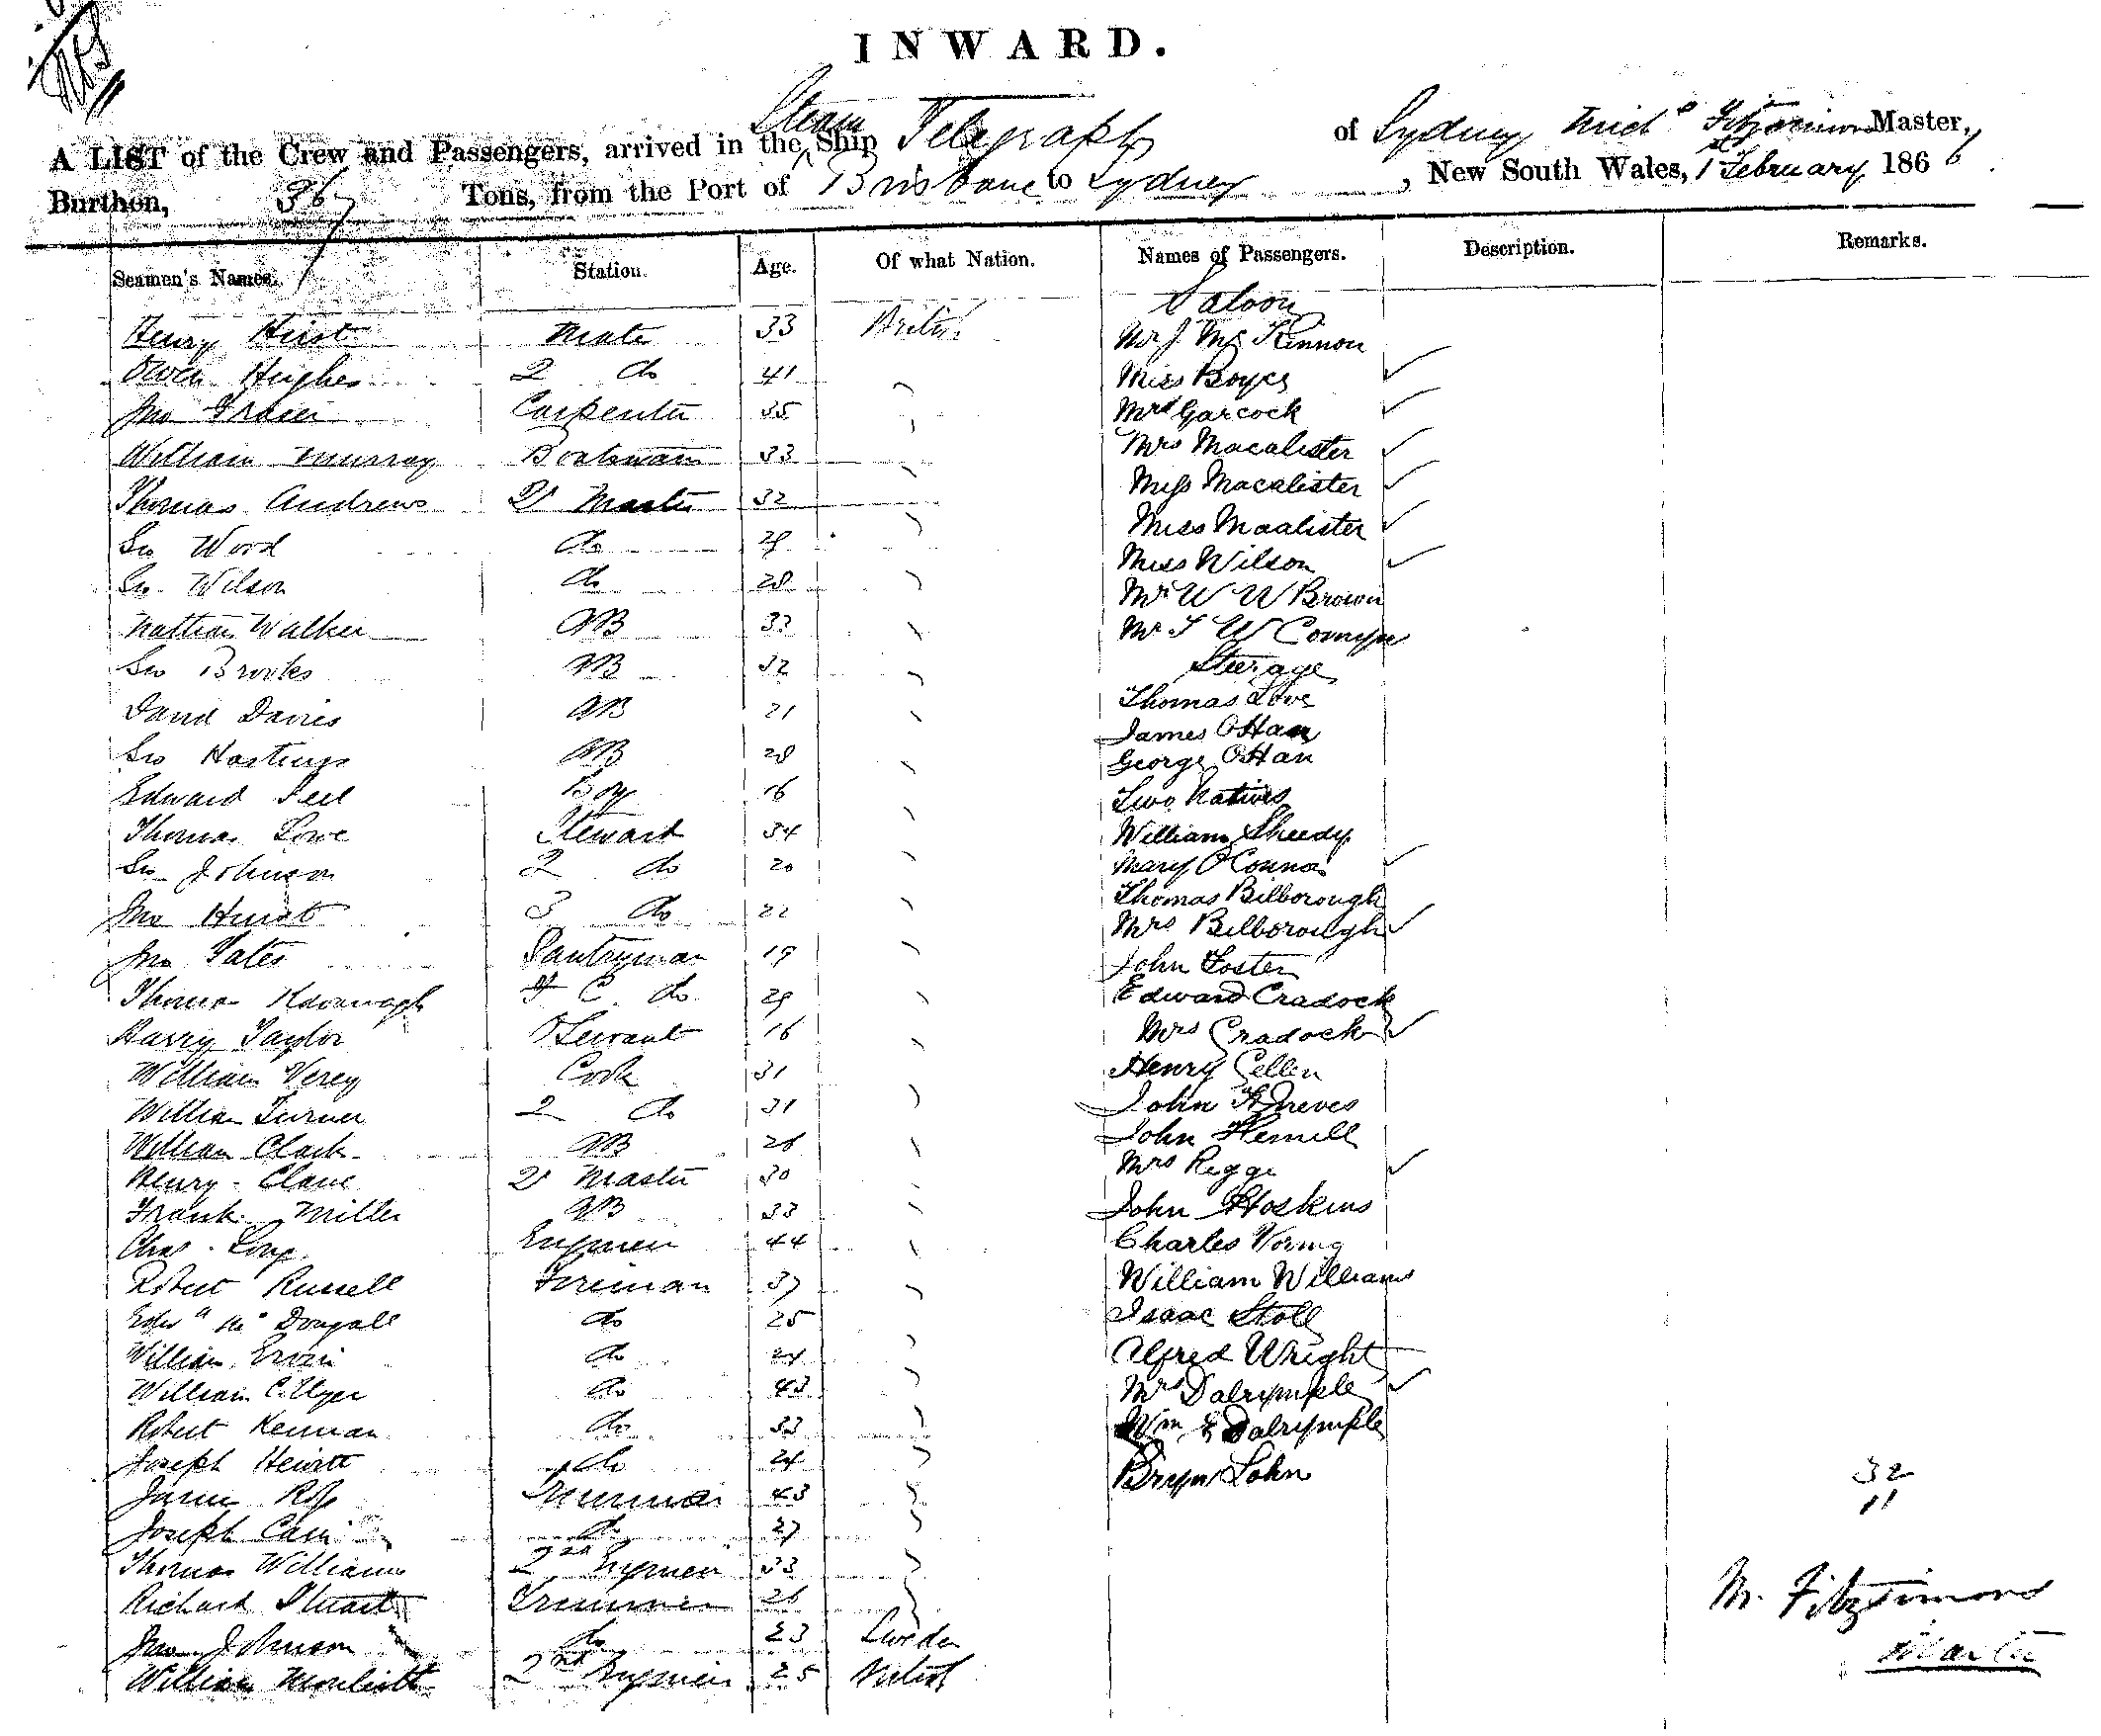 INWARD.
A LIST of the Crew and Passengers, arrived in the Steam Ship Telegraph of Sydney, Mich Fitzsimons Master,
Burthen, 367 Tons, from the Port of Brisbane to Sydney, New South Wales, 1st February 1866
Seamen's Names. Station. Age. Of what Nation. Names of Passengers. Description. Remarks.
Saloon
Henry Hirst Mate 33 British Mr J Mc Kinnon
Owen Hughes 2 do 41 Miss Boyce
Jno Fraser Carpenter 35 Mrs Garcock
William Murray Boatswain 33 Mrs Macalister
Thomas Andrews Master 32 Miss Macalister
Geo Wood do 29 Miss Maalister
Geo Wilson do 28 Miss Wilson
Walker AB 33 Mr W W Brown
Geo Brookes AB 32 Mr T W
David Davies AB 21 Steerage
Geo Hastings AB 28 Thomas Love
Edward Peel Boy 16 James OHan
Thomas Lowe Steward 34 George OHan
Geo Johnson 2 do 20 Two Natives
Jno Hurst 3 do 22 William Sheedy
Jno Yates Pantryman 19 Mary O'Connor
Thomas Kavanagh F C do 29 Thomas Bilborough
Harry Taylor Servant 16 Mrs Bilborough
William Verey Cook 31 John Foster
William Turner 2 do 31 Edward Cradock
William Clark AB 26 Mrs Cradock
Henry Clave Master 30 Henry Cellen
Frank Miller AB 33 John
Chas Long Engineer 44 John Hemill
Robert Russell Fireman 37 Mrs Rigge
Edwd Mc Dougall do 25 John Hoskins
William do 24 Charles
William Collyer do 43 William Williams
Robert Kennan do 33 Isaac Stoll
Joseph Hewitt do 24 Alfred Wright
James Trimmer 43 Mrs Dalrymple
Joseph Cain do 27 Wm E Dalrymple
Thomas Williams 2nd Engineer 33 John
Richard Stuart Trimmer 26
Jno Johnson do 23 Sweden
William 2nd Engineer 25 British
32
11
M. Fitzsimons
Master